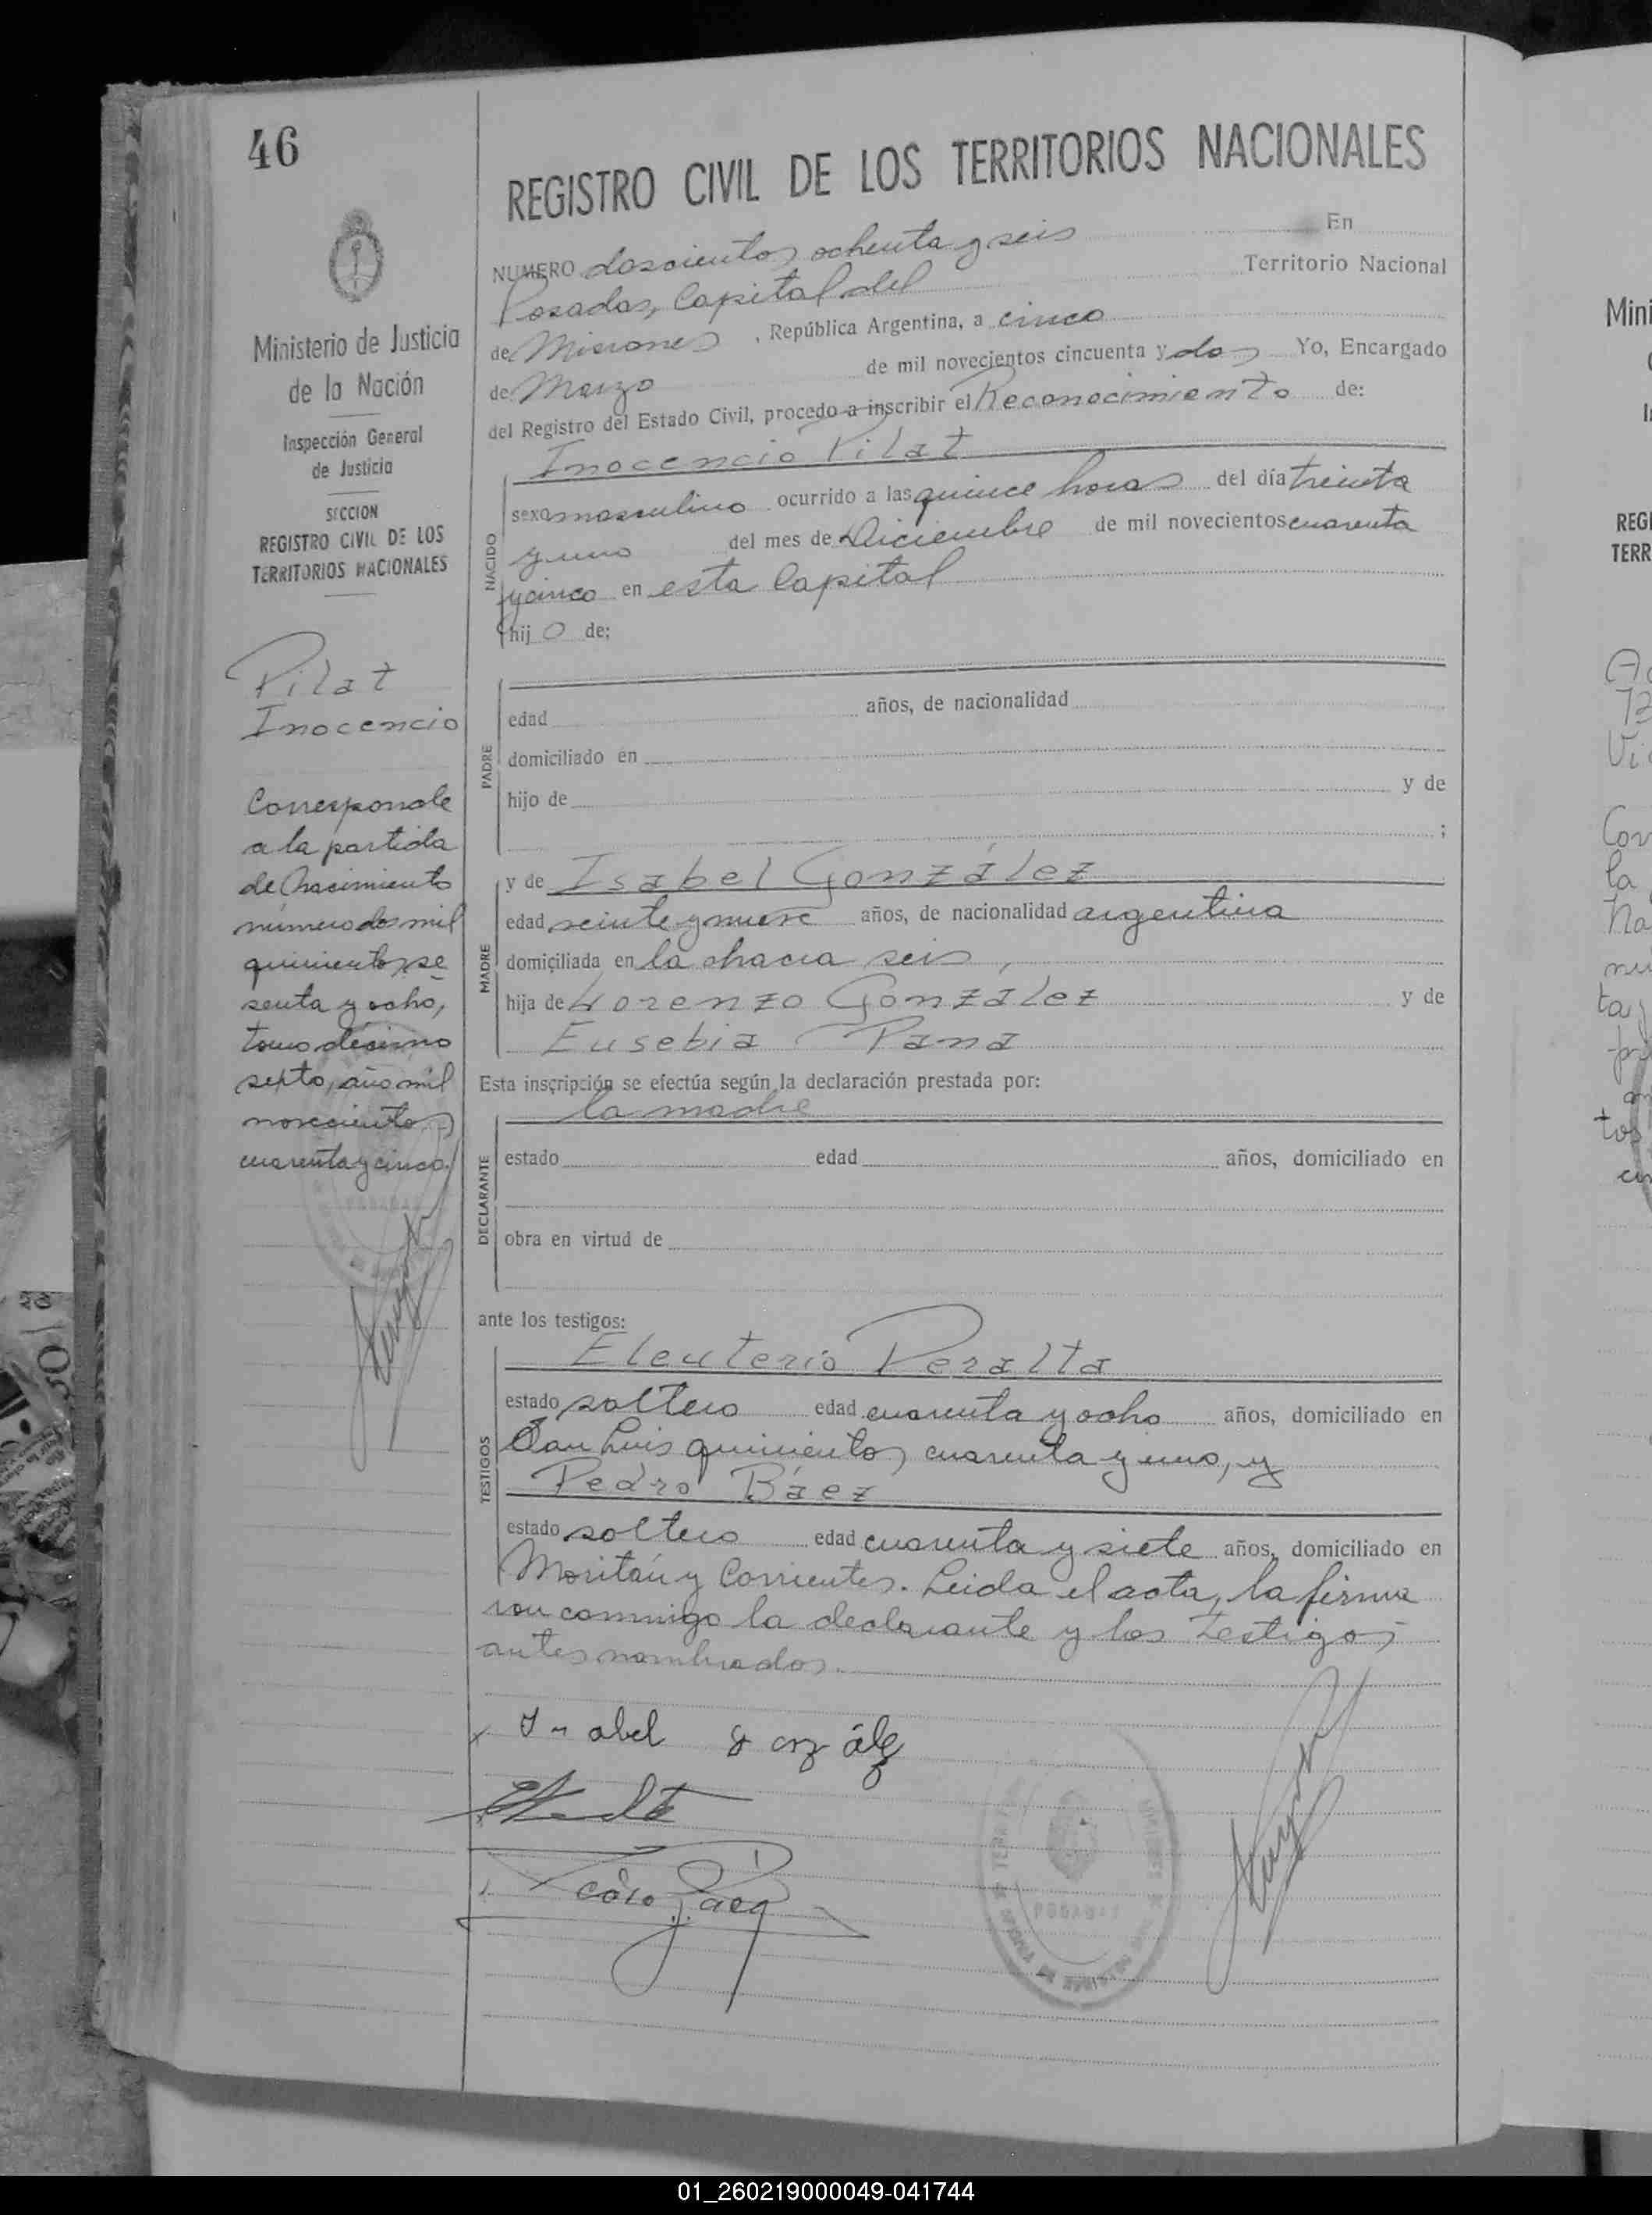 46
REGISTRO CIVIL DE LOS TERRITORIOS NACIONALES
NUMERO doscientos ochenta y seis En
Posadas, Capital del Territorio Nacional
de Misiones, República Argentina, a cinco
de Marzo de mil novecientos cincuenta y dos Yo, Encargado
del Registro del Estado Civil, procedo a inscribir el Reconocimiento de:
Inocencio Pilat
sexo masculino ocurrido a las quince horas del día treinta
y uno del mes de Diciembre de mil novecientos cuarenta
y cinco en esta Capital
hijo de:
NACIDO
Ministerio de Justicia
de la Nación
Inspección General
de Justicia
SECCION
REGISTRO CIVIL DE LOS
TERRITORIOS NACIONALES
Pilat
Inocencio
Corresponde
a la partida
de Nacimiento
número dos mil
quinientos se
senta y ocho,
tomo décimo
septo, año mil
novecientos
cuarenta y cinco.
PADRE
edad años, de nacionalidad
domiciliado en
hijo de y de
;
MADRE
y de Isabel González
edad veinte y nueve años, de nacionalidad argentina
domiciliada en la chacra seis,
hija de Lorenzo González y de
Eusebia Pana
Esta inscripción se efectúa según la declaración prestada por:
la madre
DECLARANTE
estado edad años, domiciliado en
obra en virtud de
ante los testigos:
Eleuterio Peralta
TESTIGOS
estado soltero edad cuarenta y ocho años, domiciliado en
San Luis quinientos cuarenta y uno, y
Pedro Báez
estado soltero edad cuarenta y siete años, domiciliado en
Moritán y Corrientes. Leida el acta, la firma
ron conmigo la declarante y los testigos
antes nombrados.
Isabel gonzález
Pedro Báez
POSADAS
01_260219000049-041744